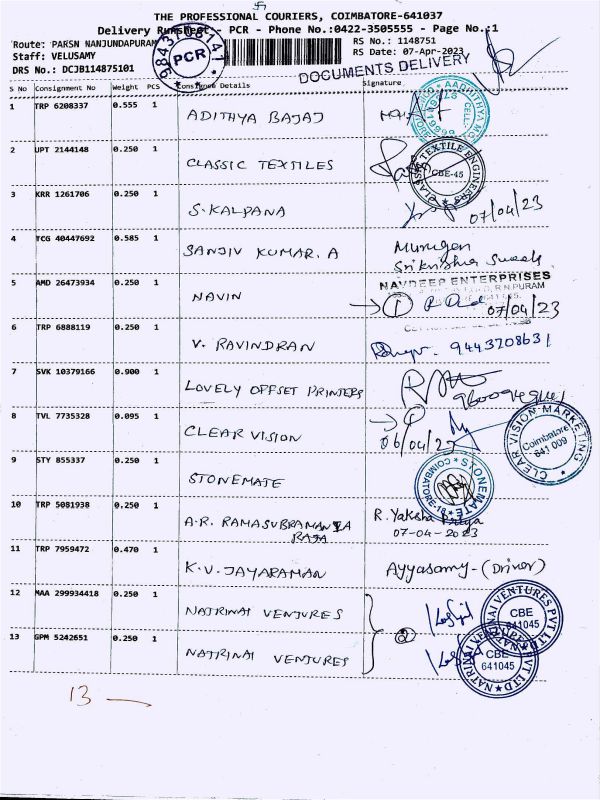 THE PROFESSIONAL COURIERS, COIMBATORE-641037
Delivery Runsheet - PCR - Phone No.:0422-3505555 - Page No.:1
Route: PARSN NANJUNDAPURAM RS No.: 1148751
Staff: VELUSAMY RS Date: 07-Apr-2023
DRS No.: DCJB114875101 DOCUMENTS DELIVERY
PCR
S No Consignment No Weight PCS Consignee Details Signature
1 TRP 6208337 0.555 1 ADITHYA BAJAJ
2 UPT 2144148 0.250 1 CLASSIC TEXTILES
CLASSIC TEXTILE ENGINEERS CBE-45
3 KRR 1261706 0.250 1 S.KALPANA 07/04/23
4 TCG 40447692 0.585 1 SANJIV KUMAR. A Murugan
Srikrishna Sweets
5 AMD 26473934 0.250 1 NAVIN
NAVDEEP ENTERPRISES
R.N.PURAM
1 07/04/23
6 TRP 6888119 0.250 1 V. RAVINDRAN 9443708631
7 SVK 10379166 0.900 1 LOVELY OFFSET PRINTERS
8 TVL 7735328 0.095 1 CLEAR VISION
CLEAR VISION MARKETING
Coimbatore
641 009
9 STY 855337 0.250 1 STONEMATE
STONEMATE COIMBATORE-18
10 TRP 5081938 0.250 1 A.R. RAMASUBRAMANIA
RAJA
R. Yaksha Priya
07-04-2023
11 TRP 7959472 0.470 1 K.V. JAYARAMAN Ayyasamy-(Driver)
12 MAA 299934418 0.250 1 NATRINAI VENTURES
NATRINAI VENTURES PVT LTD
CBE
641045
13 GPM 5242651 0.250 1 NATRINAI VENTURES
2
NATRINAI VENTURES PVT LTD
CBE
641045
13 —